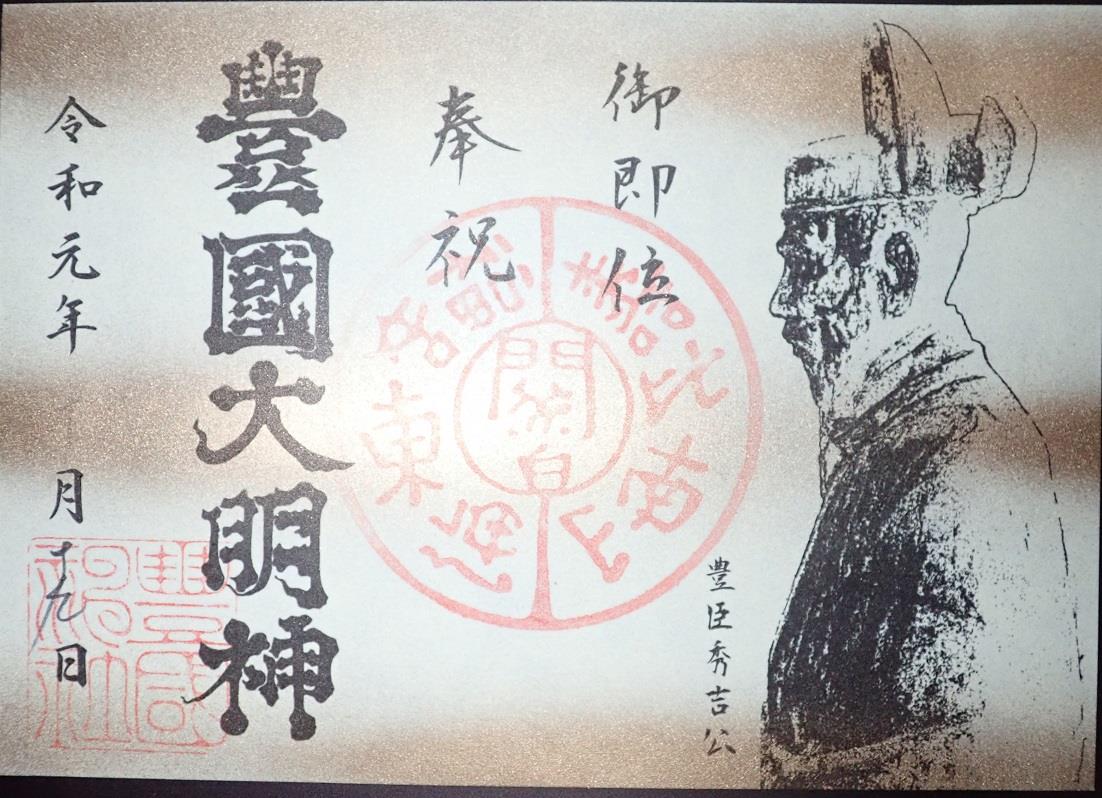 御即位
奉祝
豊臣秀吉公
豐國大明神
令和元年 月 日
關白
東
豐國神社